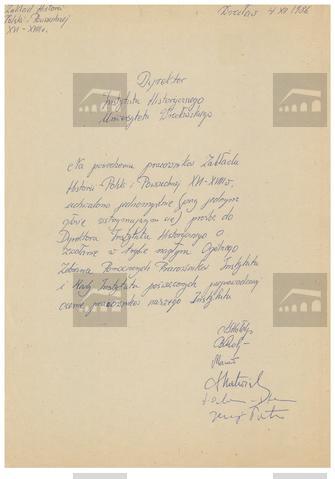 Zakład Historii
Polski i Powszechnej
XVI - XVIII w.
Wrocław 4 XII 1986
Dyrektor
Instytutu Historycznego
Uniwersytetu Wrocławskiego
Na posiedzeniu pracowników Zakładu
Historii Polski i Powszechnej XVI-XVIII w.
uchwalono jednomyślnie (przy jednym
głosie wstrzymującym się) prośbę do
Dyrektora Instytutu Historycznego o
zwołanie w trybie nagłym Ogólnego
Zebrania Pracowników Instytutu
i Rady Instytutu poświęconych
ocenie pracowników naszego Instytutu.